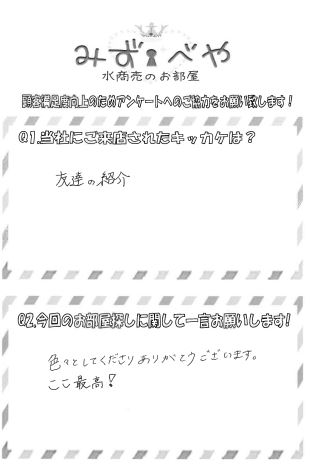 みずべや
水商売のお部屋
顧客満足度向上のためアンケートへのご協力をお願い致します！
Q1.当社にご来店されたキッカケは？
友達の紹介
Q2.今回のお部屋探しに関して一言お願いします!
色々としてくださりありがとうございます。
ここ最高！